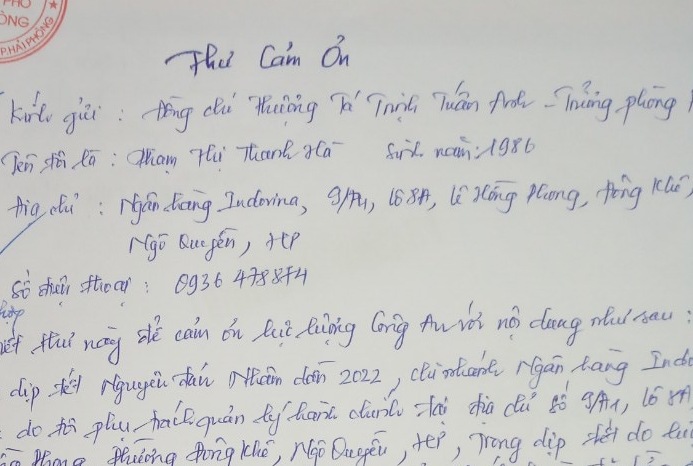 PHỐ
ÒNG
P.HẢI PHÒNG
Thư Cảm Ơn
Kính gửi : Đồng chí Thượng Tá Trịnh Tuấn Anh - Trưởng phòng
Tên tôi là : Phạm Thị Thanh Hà Sinh năm: 1986
Địa chỉ : Ngân hàng Indovina, 9/A1, lô 8A, Lê Hồng Phong, Đông Khê,
Ngô Quyền, HP
Số điện thoại : 0936 478874
viết thư này để cảm ơn lực lượng Công An với nội dung như sau :
dịp tết Nguyên đán Nhâm dần 2022, chi nhánh Ngân hàng Indo
do tôi phụ trách quản lý hành chính tại địa chỉ số 9/A1, lô 8A
Phong phường Đông Khê, Ngô Quyền, HP, Trong dịp tết do